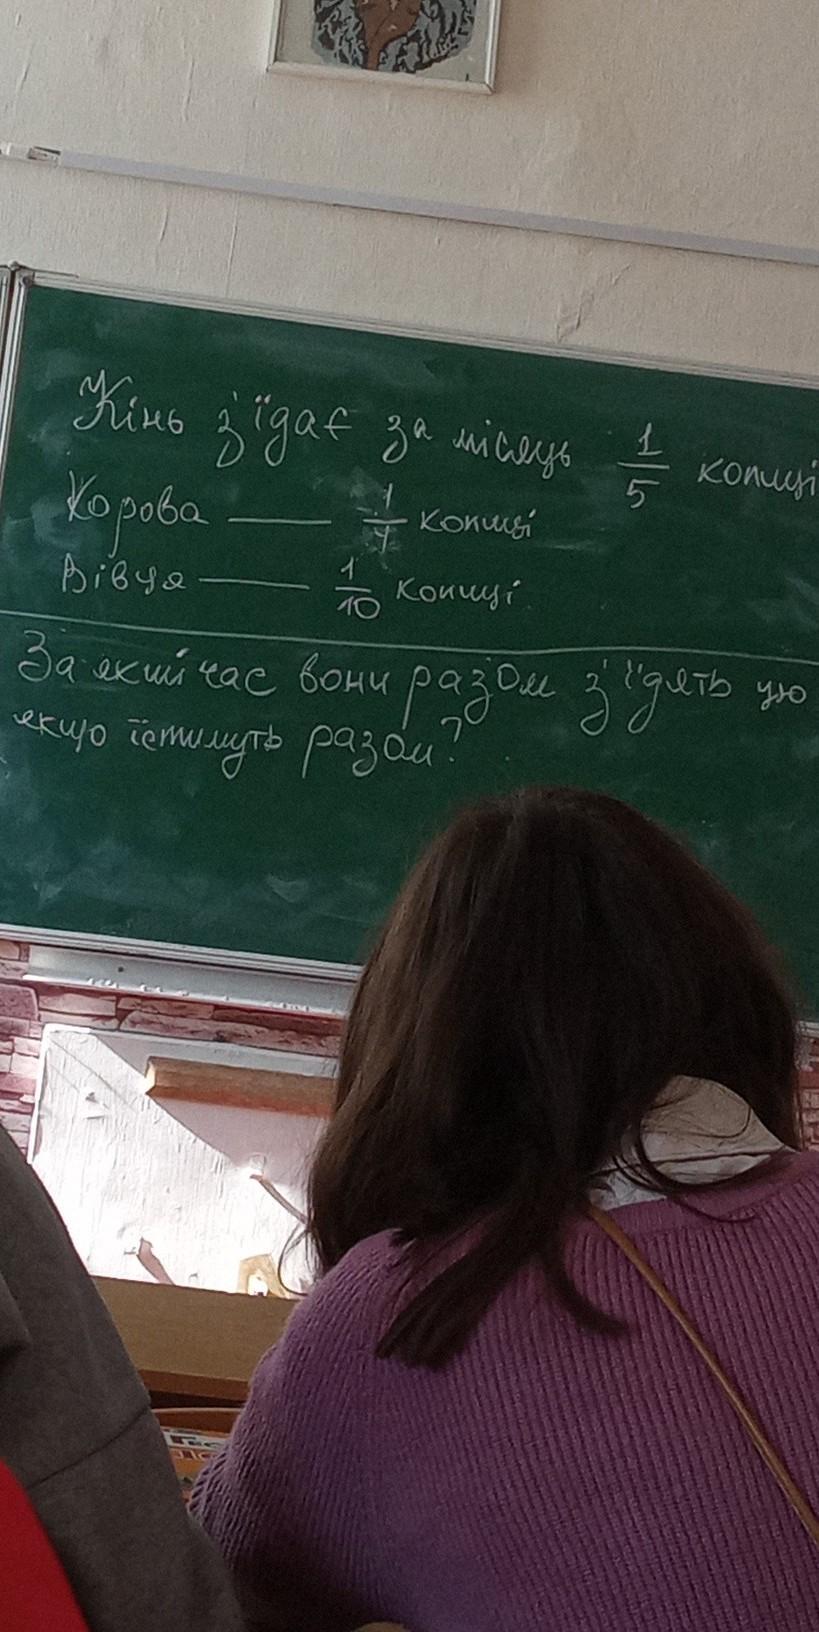 Кінь з'їдає за місяць 1/5 копиці
Корова — 1/4 копиці
Вівця — 1/10 копиці
За який час вони разом з'їдять цю
якщо їстимуть разом?